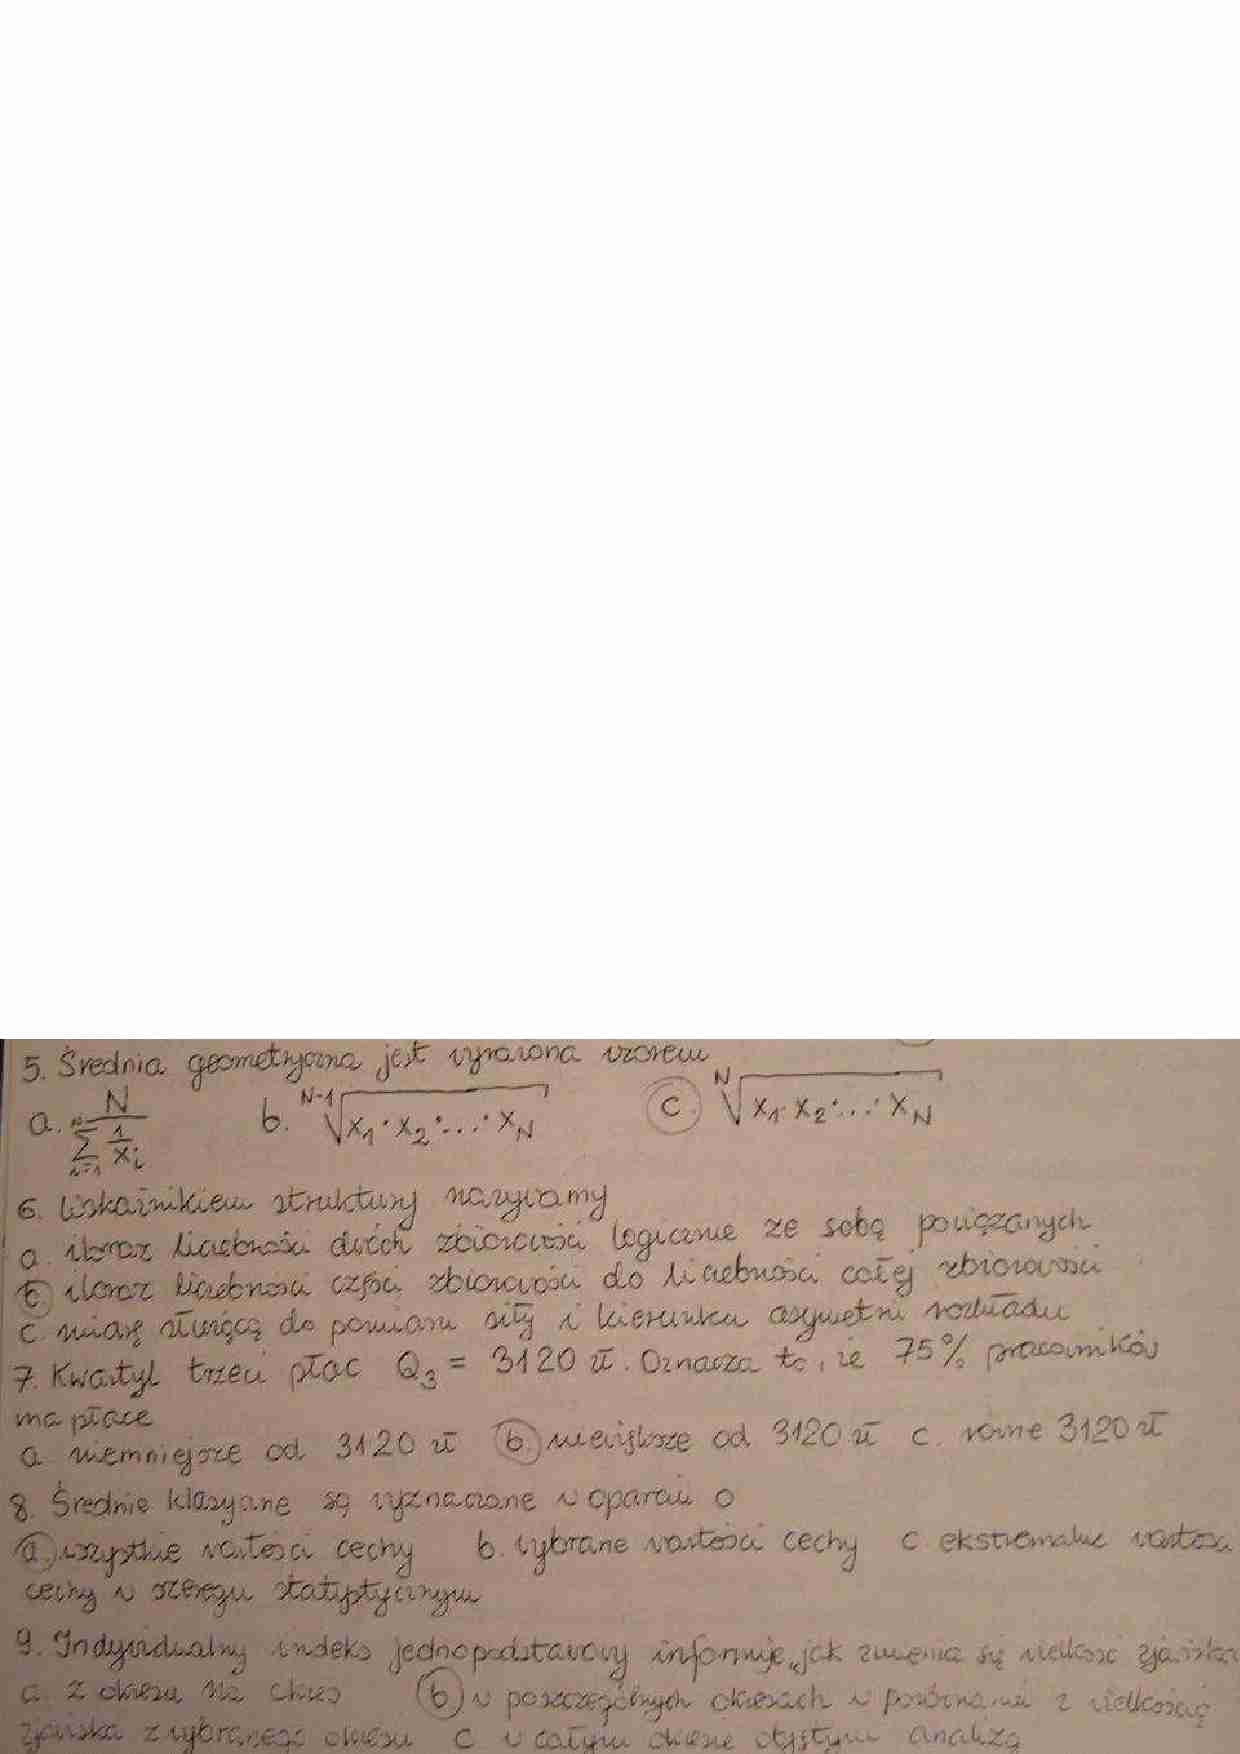 5. Średnia geometryczna jest wyrażona wzorem
a. N / n Σ i=1 1/xᵢ b. ᴺ⁻¹√x₁·x₂·...·x_N c. ᴺ√x₁·x₂·...·x_N
6. Wskaźnikiem struktury nazywamy
a. iloraz liczebności dwóch zbiorowości logicznie ze sobą powiązanych
b. iloraz liczebności części zbiorowości do liczebności całej zbiorowości
c. miarę służącą do pomiaru siły i kierunku asymetrii rozkładu
7. Kwartyl trzeci płac Q₃ = 3120 zł. Oznacza to, że 75% pracowników
ma płace
a. niemniejsze od 3120 zł b. niewiększe od 3120 zł c. równe 3120 zł
8. Średnie klasyczne są wyznaczone w oparciu o
a. wszystkie wartości cechy b. wybrane wartości cechy c. ekstremalne wartości
cechy w szeregu statystycznym
9. Indywidualny indeks jednopodstawowy informuje „jak zmienia się wielkość zjawiska
a. z okresu na okres b. w poszczególnych okresach w porównaniu z wielkością
zjawiska z wybranego okresu c. w całym okresie objętym analizą